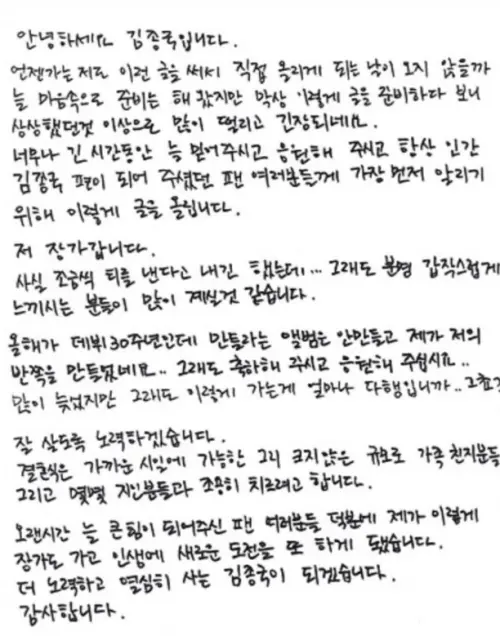 안녕하세요 김종국입니다.
언젠가는 저도 이런 글을 써서 직접 올리게 되는 날이 오지 않을까
늘 마음속으로 준비는 해 왔지만 막상 이렇게 글을 준비하다 보니
상상했던것 이상으로 많이 떨리고 긴장되네요.
너무나 긴 시간동안 늘 믿어주시고 응원해 주시고 항상 인간
김종국 편이 되어 주셨던 팬 여러분들께 가장 먼저 알리기
위해 이렇게 글을 올립니다.
저 장가갑니다.
사실 조금씩 티를 낸다고 내긴 했는데... 그래도 분명 갑작스럽게
느끼시는 분들이 많이 계실것 같습니다.
올해가 데뷔 30주년인데 만들라는 앨범은 안만들고 제가 저의
반쪽을 만들었네요.. 그래도 축하해 주시고 응원해 주십시요..
많이 늦었지만 그래도 이렇게 가는게 얼마나 다행입니까.. 그쵸?
잘 살도록 노력하겠습니다.
결혼식은 가까운 시일에 가능한 그리 크지않은 규모로 가족 친지분들
그리고 몇몇 지인분들과 조용히 치르려고 합니다.
오랜시간 늘 큰 힘이 되어주신 팬 여러분들 덕분에 제가 이렇게
장가도 가고 인생에 새로운 도전을 또 하게 됐습니다.
더 노력하고 열심히 사는 김종국이 되겠습니다.
감사합니다.